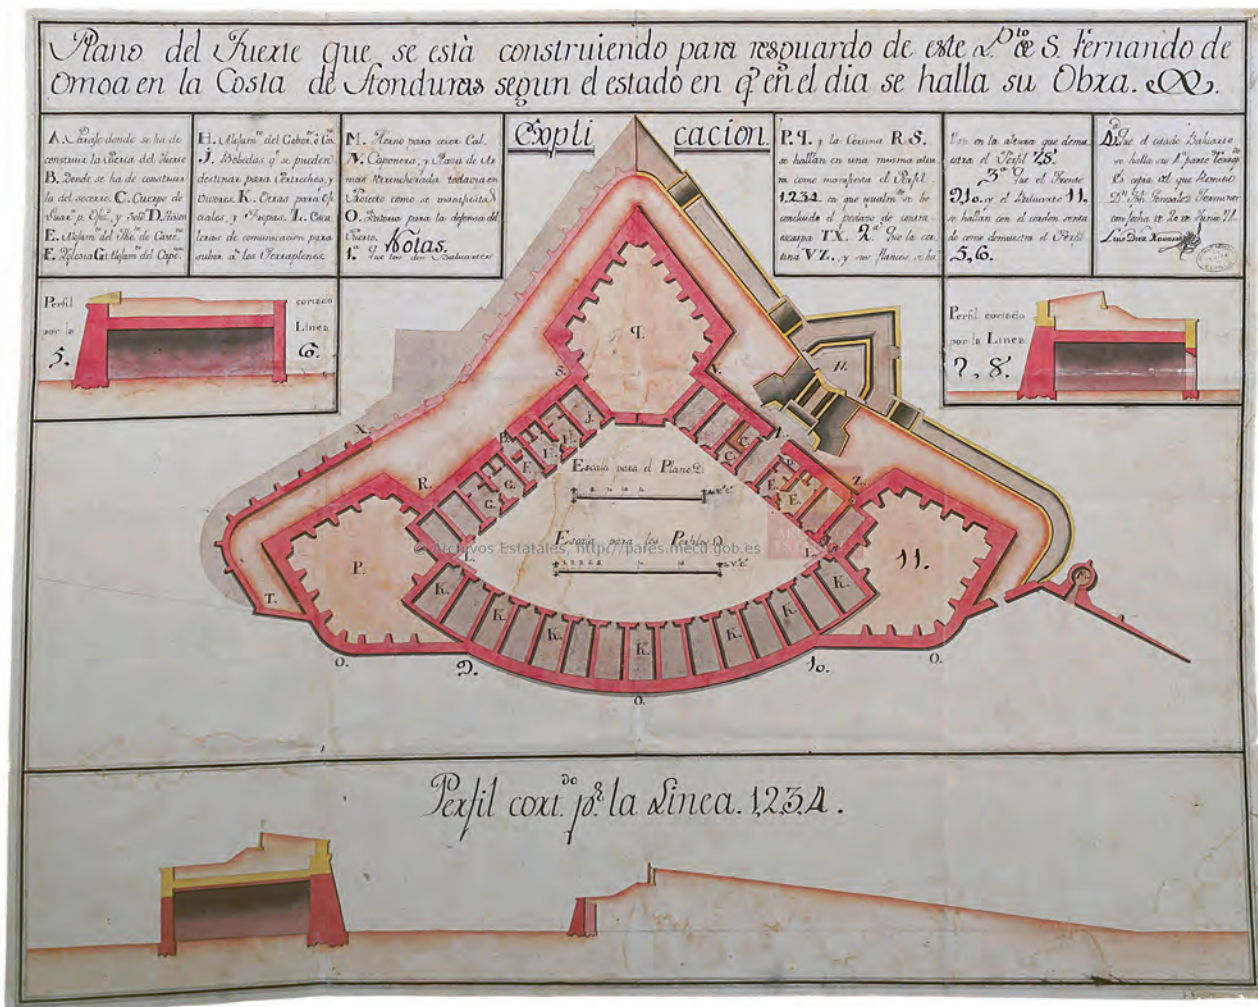 Plano del Fuerte que se està construiendo para resguardo de este P.to de S. Fernando de
Omoa en la Costa de Honduras segun el estado en q.e en el dia se halla su Obra.
Expli cacion.
A. Paraje donde se ha de
construir la Puerta del Fuerte
B. Donde se ha de construir
la del socorro. C. Cuerpo de
Guar.a p.a Ofic.s y Sold.s D.
E. Alojam.to del
F. Yglesia G. Alojam.to del Cape.n
H. Alojam.to del Gober.or ò
J. Bobedas q.e se pueden
destinar para Pertrechos, y
Viveres. K. Otras para Ofi
ciales, y Tropas. L. Esca
leras de comunicacion para
subir a los Terraplenes.
M. Horno para cocer Cal.
N. Caponera, y Plaza de Ar
mas atrincherada todavia en
Proyecto como se manifiesta
O. Bateria para la defensa del
Puerto.
Notas.
1.a Que los dos Baluartes
P. q. y la Cortina R S.
se hallan en una misma altu
ra como manifiesta el Perfil
1234. en que igualm.te se ha
concluido el pedazo de contra
escarpa T X. 2.a Que la cor
tina V Z. y sus flancos, se ha
llan en la altura que demu
estra el Perfil 7 8.
3.a Que el Frente
9 10. y el Baluarte 11.
se hallan con el cordon
como demuestra el Perfil
5, 6.
Que el citado Baluarte
se halla en
Es copia del que Remitio
D.n Jph. Gonzales Ferminor
con fecha de 20 de Junio
Luis Diez Navarro
Perfil cortado
por la Linea
5. 6.
Perfil cortado
por la Linea
7, 8.
q.
N.
S.
V.
X.
R.
Z.
J.
H.
H.
F.
G.
G.
C.
C.
E.
E.
L.
L.
P.
11.
T.
K.
K.
K.
K.
K.
K.
K.
O.
9.
O.
10.
O.
Escala para el Plano
Escala para los Perfiles
© Archivos Estatales, http://pares.mecd.gob.es
Perfil cort.do p.r la Linea. 1,2,3,4.